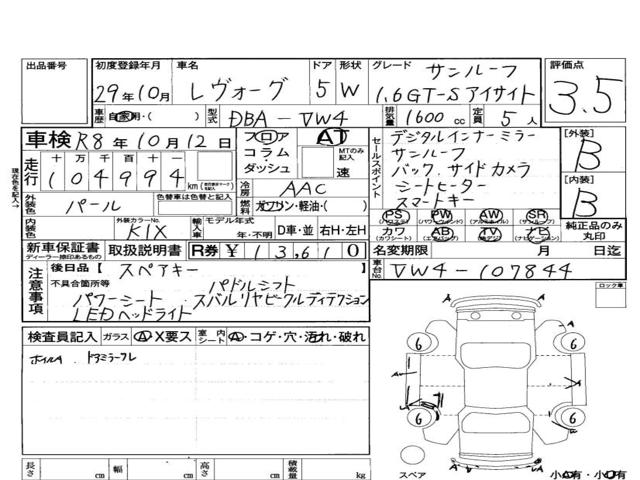 出品番号
初度登録年月 29年10月
車名 レヴォーグ
ドア 5
形状 W
グレード サンルーフ
1.6GT-S アイサイト
評価点 3.5
車歴 自家用・( )
型式 DBA-VM4
排気量 1600 cc
定員 5人
車検 R8年10月12日
フロア
コラム・
ダッシュ
AT
MTのみ記入
速
セールスポイント
デジタルインナーミラー
サンルーフ
バック、サイドカメラ
シートヒーター
スマートキー
[外装] B
[内装] B
走行 十 万 千 百 十 一
104994 km
現在枠を記入→
冷房 AAC
外装色 パール
色替車は色替と記入
燃料 ガソリン・軽油・( )
PS (パワステ) PW (パワーウィンドウ) AW (アルミホイル) SR (サンルーフ)
カワ (カワシート) AB (エアバッグ) TV (テレビ) ナビ (ナビゲーション)
純正品のみ丸印
内装色
外装カラーNo. K1X
輸入車
モデル年式 年・不明
D車・並 右H・左H
新車保証書
ディーラー捺印あるもの
取扱説明書
R券 ¥13,610
名変期限 月 日迄
車台No. VM4-107844
注意事項
後日品 [スペアキー ]
不具合箇所等 パドルシフト
パワーシート スバルリヤビークルディテクション
LEDヘッドライト
ロック車
検査員記入 ガラス A・X要ス 室内シート A・コゲ・穴・汚れ・破れ
ホイルA ドアミラーフレ
6 6
6 6
スペア
長さ cm 幅 cm 高さ cm 積載量 kg
小A有・小U有